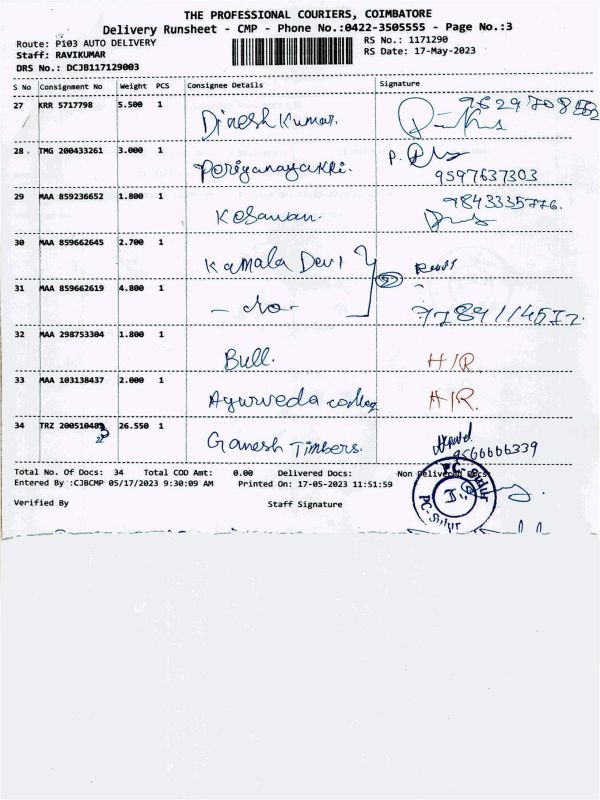 THE PROFESSIONAL COURIERS, COIMBATORE
Delivery Runsheet - CMP - Phone No.:0422-3505555 - Page No.:3
Route: P103 AUTO DELIVERY
RS No.: 1171290
Staff: RAVIKUMAR
RS Date: 17-May-2023
DRS No.: DCJB117129003
S No Consignment No Weight PCS Consignee Details Signature
27 KRR 5717798 5.500 1 Dinesh Kumar.
28 . TMG 200433261 3.000 1 Periyanayakki. P.
9597637303
29 MAA 859236652 1.800 1 Kesavan. 9843335776.
30 MAA 859662645 2.700 1 Kamala Devi
31 MAA 859662619 4.800 1 - do - 7789114572
32 MAA 298753304 1.800 1 Bull. H/R
33 MAA 103138437 2.000 1 Ayurveda H/R.
34 TRZ 26.550 1 Ganesh Timbers. 9566666339
Total No. Of Docs: 34 Total COD Amt: 0.00 Delivered Docs: Non Delivered Docs:
Entered By :CJBCMP 05/17/2023 9:30:09 AM Printed On: 17-05-2023 11:51:59
Verified By Staff Signature
PC-Sulur
PC-Sulur